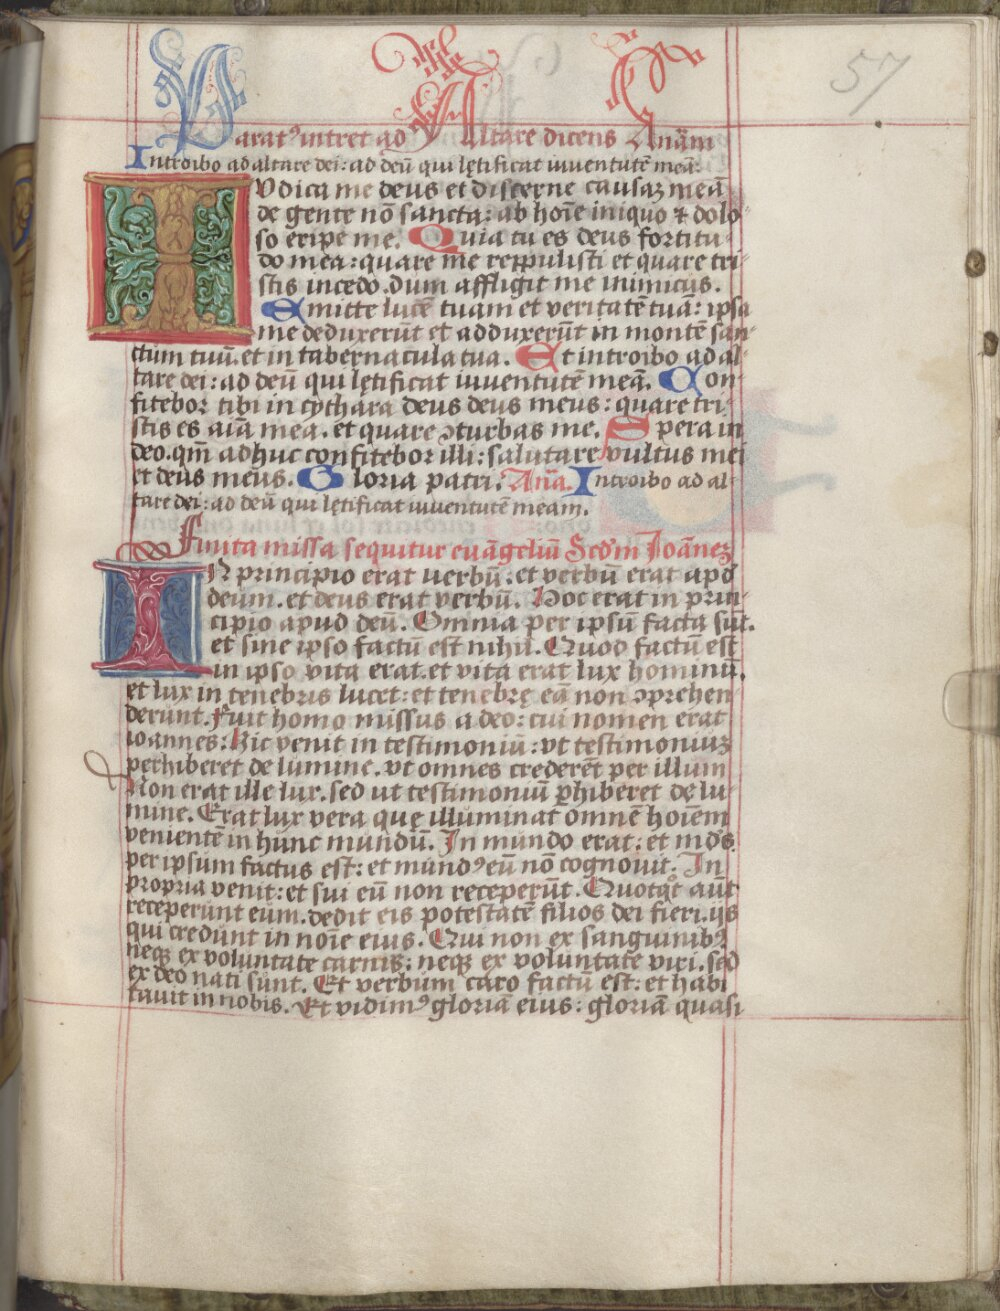 57
Parat⁹ intret ad Altare dicens Anãm
Introibo ad altare dei: ad deũ qui lętificat iuuentutẽ meã:
IVdica me deus et discerne causaʒ meã
de gente nõ sancta: ab hoĩe iniquo ⁊ dolo
so eripe me. Quia tu es deus fortitu
do mea: quare me reppulisti et quare tri
stis incedo. dum affligit me inimicus.
Emitte lucẽ tuam et veritatẽ tuã: ipsa
me deduxerũt et adduxerũt in montẽ san
ctum tuũ. et in tabernacula tua. Et introibo ad al
tare dei: ad deũ qui lętificat iuuentutẽ meã. Con
fitebor tibi in cythara deus deus meus: quare tri
stis es aĩa mea. et quare ɔturbas me. Spera in
deo. qm̃ adhuc confitebor illi: salutare vultus mei
et deus meus. Gloria patri. Anã. Introibo ad al
tare dei: ad deũ qui lętificat iuuentutẽ meam.
Finita missa sequitur euãgeliũ Scdm̃ Joãneʒ
IN principio erat uerbũ. et verbũ erat apd̃
deum. et deus erat verbũ. Hoc erat in prin
cipio apud deũ. Omnia per ipsũ facta sũt.
et sine ipso factũ est nihil. Quod factũ est
in ipso vita erat. et vita erat lux hominũ.
et lux in tenebris lucet: et tenebrę eã non ɔprehen
derunt. Fuit homo missus a deo: cui nomen erat
ioannes: Hic venit in testimoniũ: vt testimoniuʒ
perhiberet de lumine. vt omnes crederẽt per illum
Non erat ille lux. sed ut testimoniũ ꝑhiberet de lu
mine. Erat lux vera quę illuminat omnẽ hoiẽm
venientẽ in hunc mundũ. In mundo erat: et md̃s
per ipsum factus est: et mund⁹ eũ nõ cognouit. In
propria venit: et sui eũ non receperũt. Quotqͦt aũt
receperunt eum. dedit eis potestatẽ filios dei fieri. ijs
qui credunt in noĩe eius. Qui non ex sanguinib⁹
neqʒ ex voluntate carnis: neqʒ ex voluntate viri. sed
ex deo nati sunt. Et verbum caro factũ est: et habi
tauit in nobis. Et vidim⁹ gloriã eius: gloriã quasi